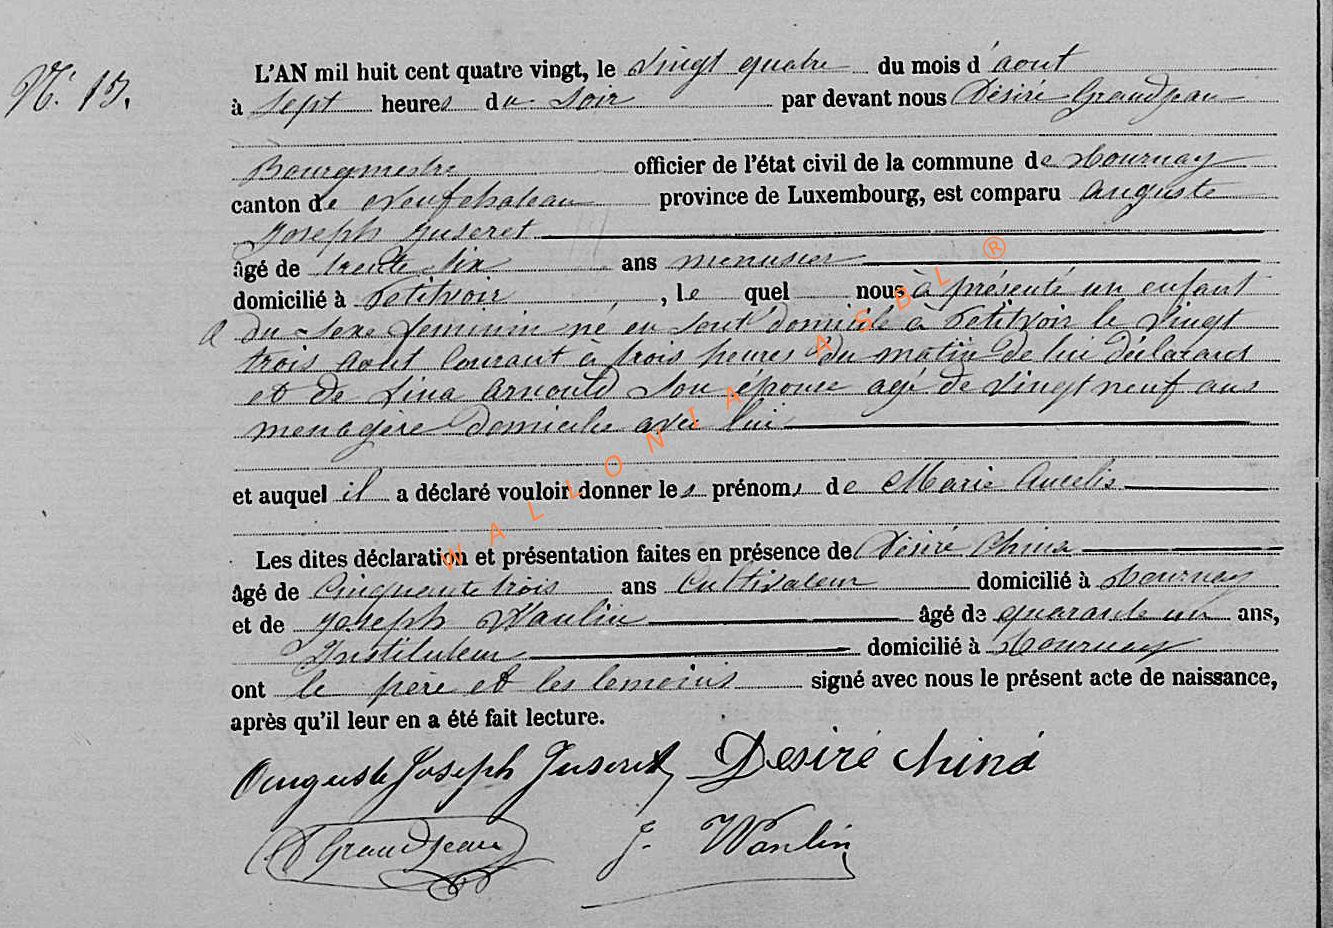 N° 15.
L'AN mil huit cent quatre vingt, le vingt quatre du mois d'aout
à sept heures du soir par devant nous Désiré Grandjean
Bourgmestre officier de l'état civil de la commune de Tournay
canton de Neufchateau province de Luxembourg, est comparu Auguste
Joseph Juseret
âgé de trente six ans menusier
domicilié à Petitvoir, le quel nous à présenté un enfant
du sexe feminin né en sont domicile à Petitvoir le vingt
trois aout courant à trois heures du matin de lui déclarant
et de Lina Arnould son épouse agé de vingt neuf ans
menagère domicilie avec lui
et auquel il a déclaré vouloir donner les prénoms de Marie Aurelie
Les dites déclaration et présentation faites en présence de Désiré China
âgé de cinquante trois ans cultivateur domicilié à Tournay
et de Joseph Wanlin âgé de quarante un ans,
Instituteur domicilié à Tournay
ont le père et les temoins signé avec nous le présent acte de naissance,
après qu'il leur en a été fait lecture.
Auguste Joseph Juseret Desiré China
D Grandjean J. Wanlin
WALLONIA ASBL ®